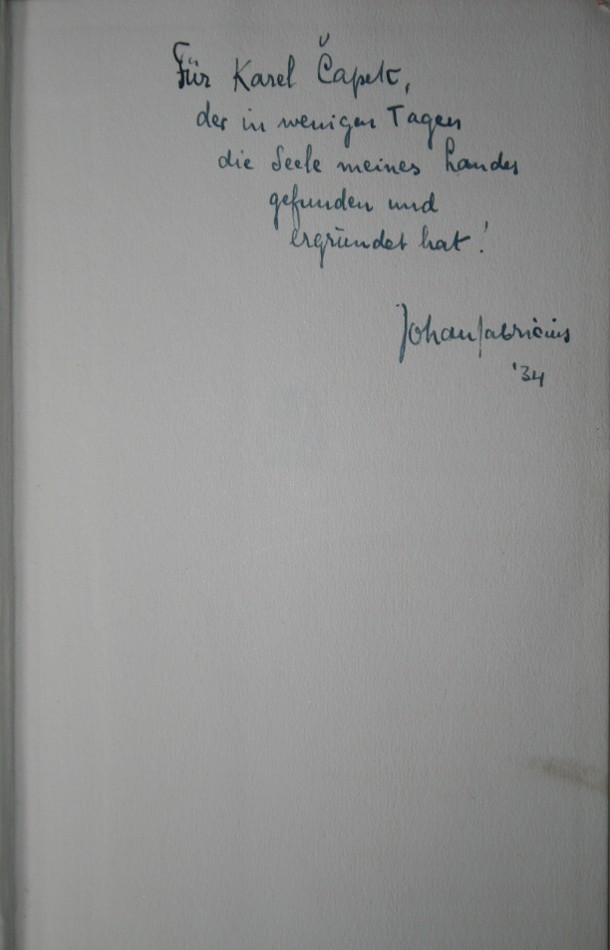 Für Karel Čapek,
der in wenigen Tagen
die Seele meines Landes
gefunden und
ergründet hat!
Johan Fabricius
'34